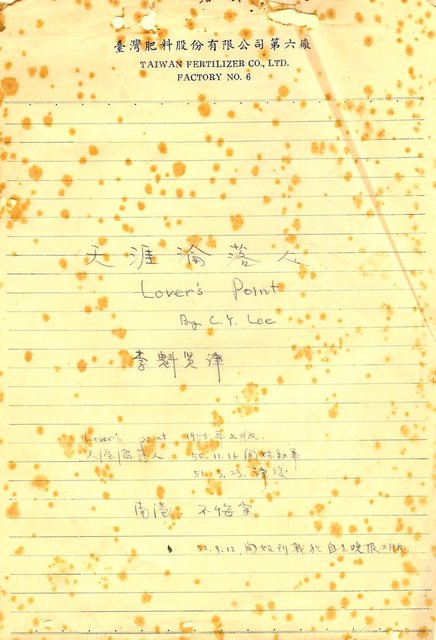 臺灣肥料股份有限公司第六廠
TAIWAN FERTILIZER CO., LTD.
FACTORY NO. 6
天涯淪落人
Lover's Point
By C. Y. Lee
李魁賢譯
Lover's point 1958年出版
天涯淪落人 50.11.16 開始動筆
51. 3. 23. 譯竣
南瀛 不悔室
52.9.12. 開始刊載於自立晚報二版